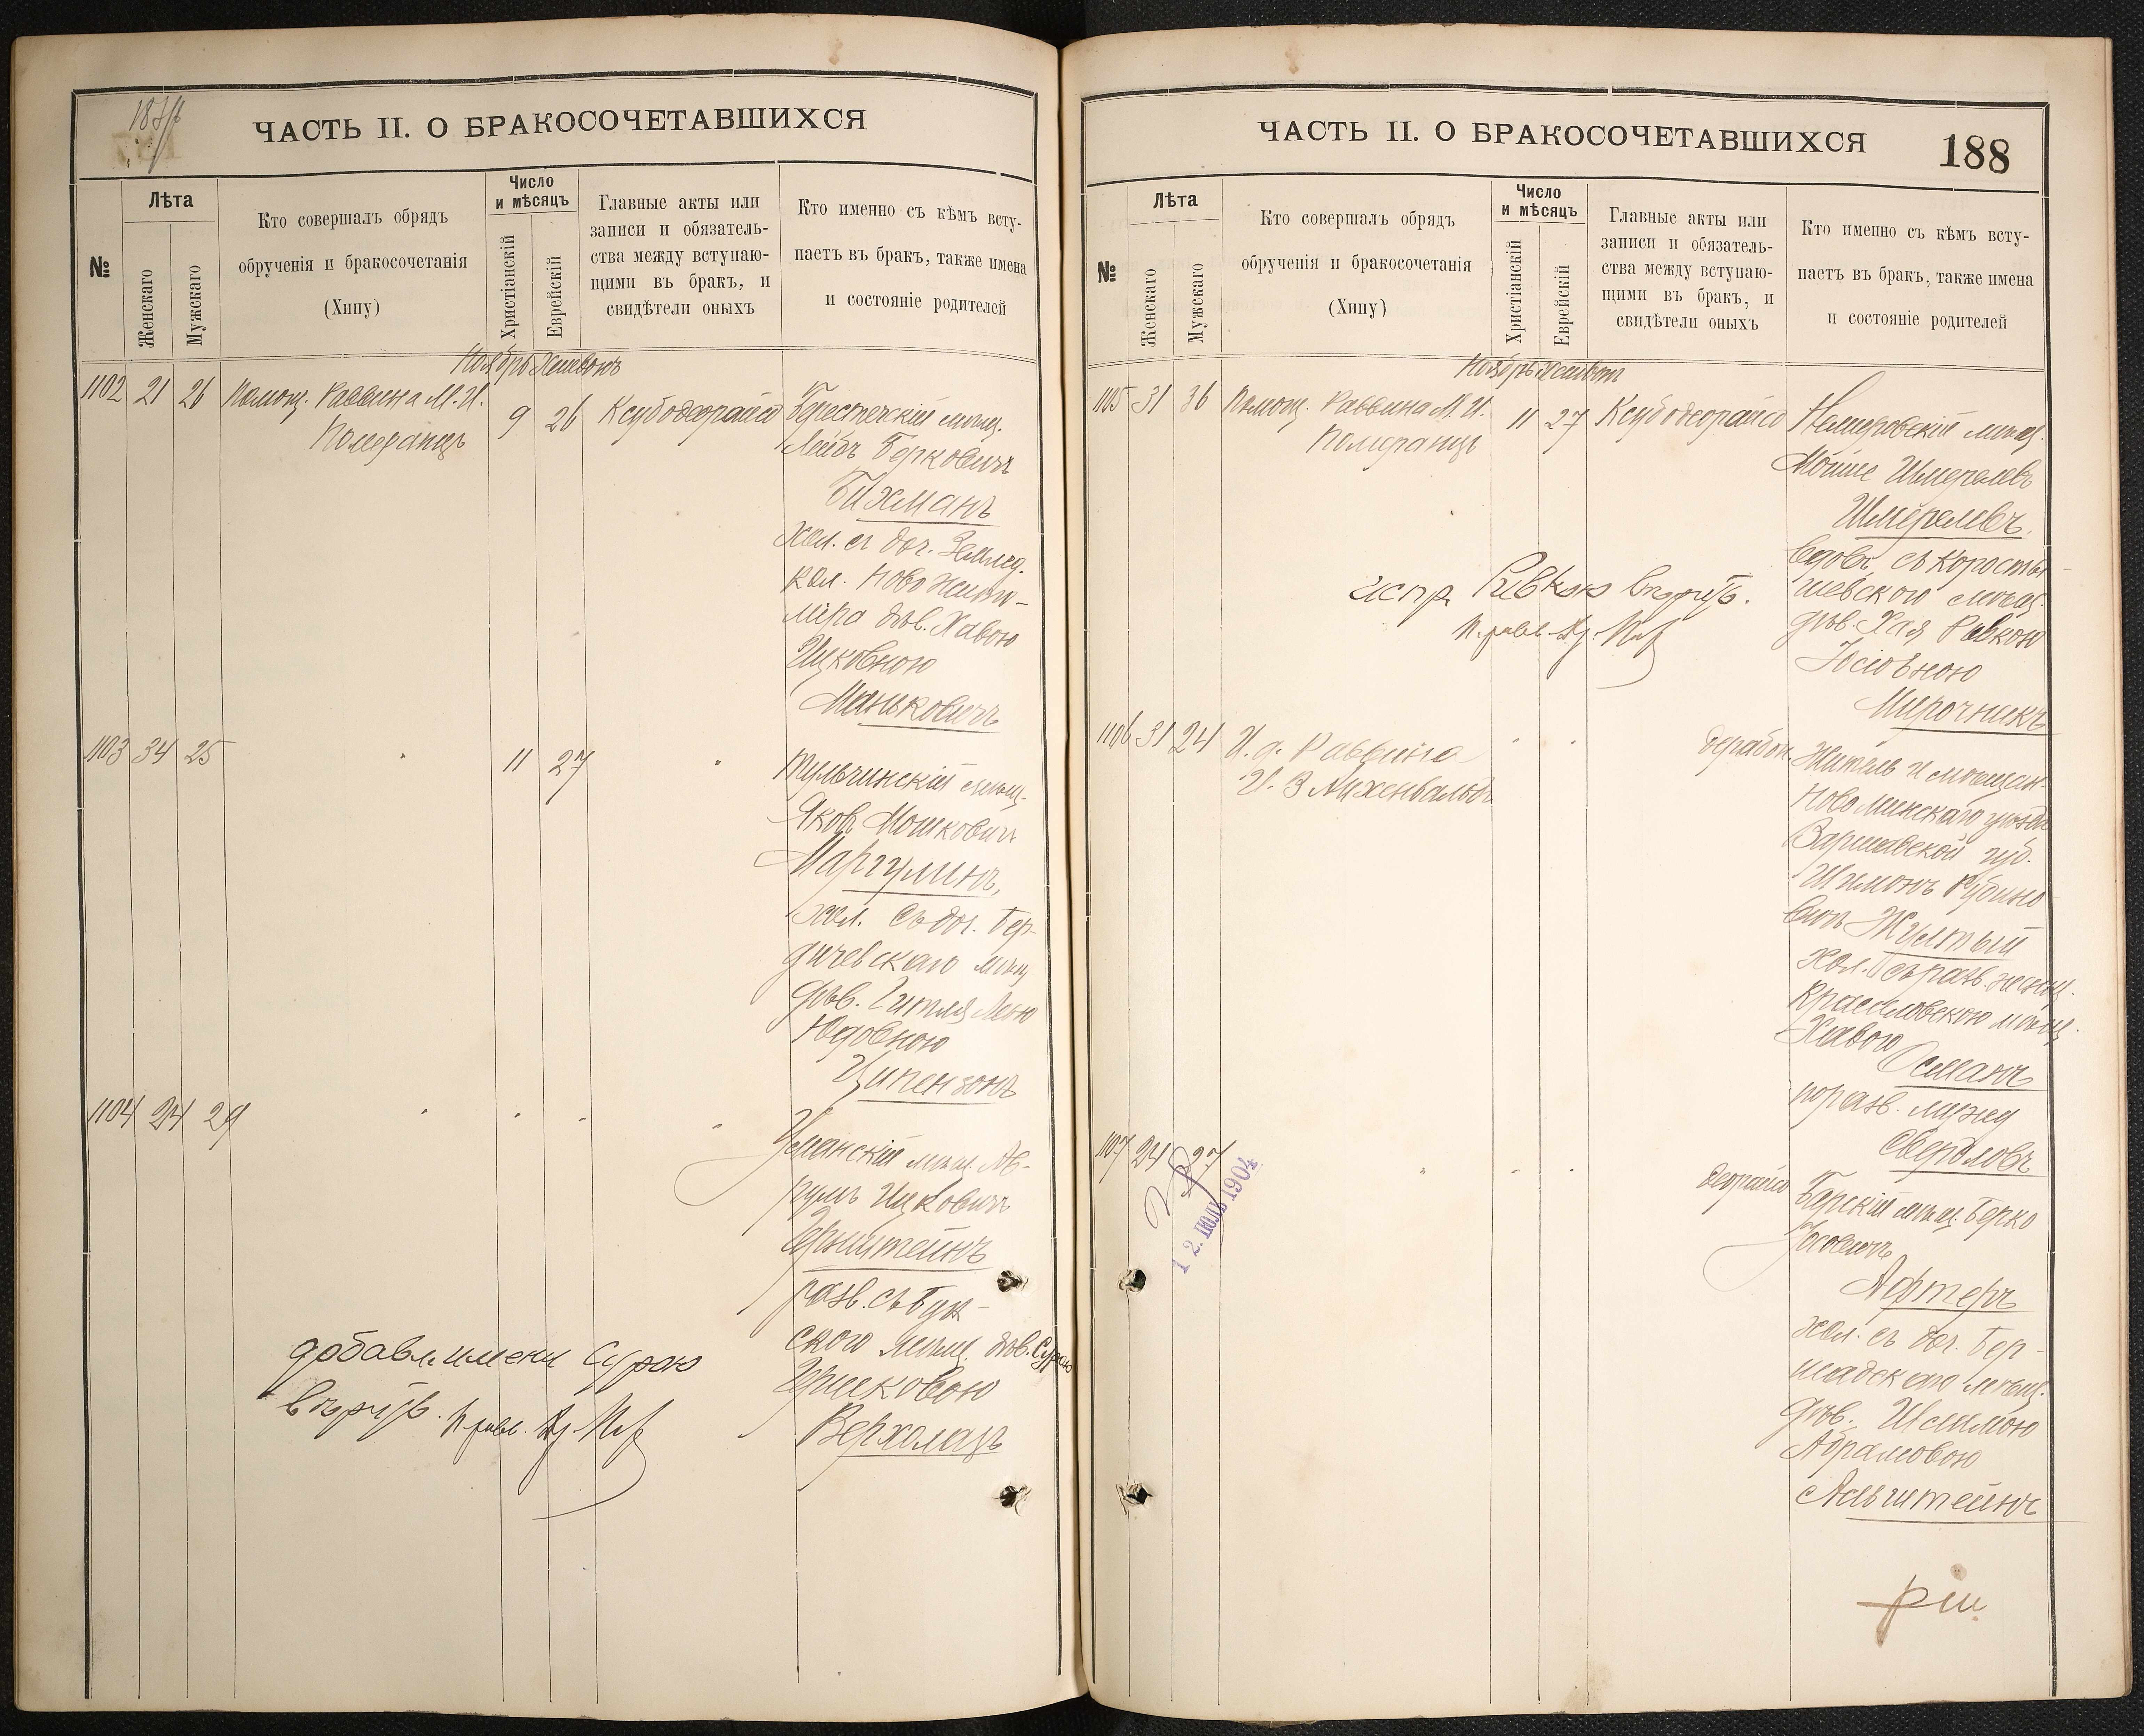 ЧАСТЬ II. О БРАКОСОЧЕТАВШИХСЯ
№
Лѣта
Женскаго
Мужскаго
Кто совершалъ обрядъ
обрученія и бракосочетанія
(Хипу)
Число
и мѣсяцъ
Христіанскій
Еврейскій
Главные акты или
записи и обязатель-
ства между вступаю-
щими въ бракъ, и
свидѣтели оныхъ
Кто именно съ кѣмъ всту-
паетъ въ бракъ, также имена
и состояніе родителей
Ноябрь Хешвонъ
1102 21 26 Помощ. Раввина М. И.
Померанцъ
9 26 Ксубодеорайсо
Берестечкій мѣщ.
Лейбъ Берковичъ
Бихманъ
хол. съ доч. Землед.
кол. Ново Жито-
міра дѣв. Хавою
Ицковною
Маньковичъ
1103 34 25 " 11 27 "
Тульчинскій мѣщ.
Яковъ Мошковичъ
Маргулинъ,
хол. съ доч. Бер-
дичевскаго мѣщ.
дѣв. Гитля Леею
Юдовною
Ципензонъ
1104 24 29 " " " "
Уманскій мѣщ. Ав-
румъ Ицковичъ
разв. съ
ского мѣщ. дѣв. Сурою
Гершковою
Верхолазъ
добавл. имени Сурою
вѣрую.
ЧАСТЬ II. О БРАКОСОЧЕТАВШИХСЯ 188
№
Лѣта
Женскаго
Мужскаго
Кто совершалъ обрядъ
обрученія и бракосочетанія
(Хипу)
Число
и мѣсяцъ
Христіанскій
Еврейскій
Главные акты или
записи и обязатель-
ства между вступаю-
щими въ бракъ, и
свидѣтели оныхъ
Кто именно съ кѣмъ всту-
паетъ въ бракъ, также имена
и состояніе родителей
Ноябрь Хешвон
1105 31 36 Помощ. Раввина М. И.
Померанцъ
11 27 Ксубодеорайсо
Немировскій мѣщ.
Мойше Шмералевъ
Шмералевъ,
вдов. съ Коросты-
шевского мѣщ.
дѣв. Хая Ривкою
Іосіовною
Мирочникъ
испр. Ривкою вѣрую.
1106 31 24 И. д. Раввина
И. З Айхенвальдъ
" "
дерабон.
Житель и мѣщан.
Новоминскаго уѣзда
Варшавской губ.
Шимонъ Рубино-
вичъ Жултый
хол. съ разв. женщ.
Красиловскою мѣщ.
Хавою
Османъ
по разв. мужед
Свердловъ
1107 24 27 " " "
12. ІЮЛЬ 1904
деорайсо
Барскій мѣщ. Берко
Іосовичъ
Афтеръ
хол. съ доч. Бер-
шадскаго мѣщ.
дѣв.
Абрамовою
Альштейнъ